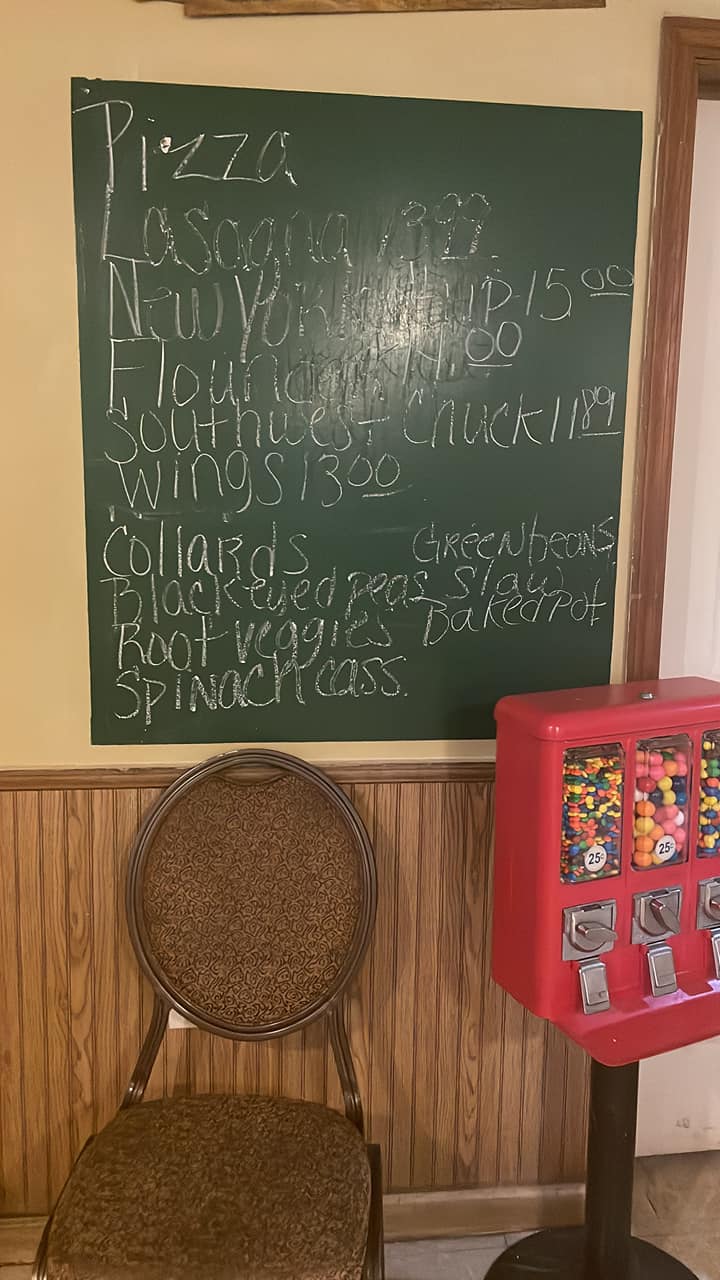 Pizza
Lasagna 13 99
New York Strip - 15 00
Flounder 14 00
Southwest Chuck 11 89
Wings 13 00
Collards
Green beans
Blackeyed peas
Slaw
Root veggies
Baked Pot
Spinach cass.
25¢
25¢